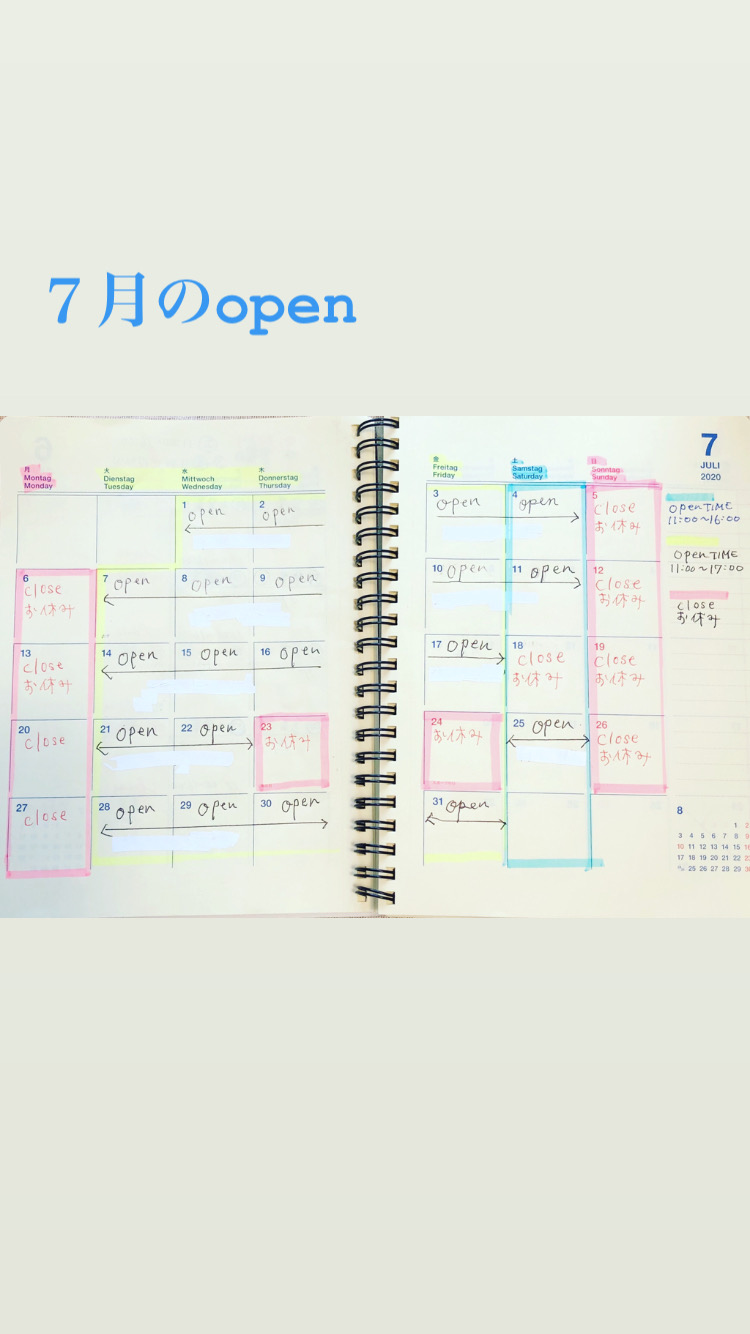 7月のopen
月 火 水 木
Montag Dienstag Mittwoch Donnerstag
Monday Tuesday Wednesday Thursday
1 open 2 open
6 close お休み 7 open 8 open 9 open
13 close お休み 14 open 15 open 16 open
20 close 21 open 22 open 23 お休み
27 close 28 open 29 open 30 open
金 土 日
Freitag Samstag Sonntag
Friday Saturday Sunday
3 open 4 open 5 close お休み
10 open 11 open 12 close お休み
17 open 18 close お休み 19 close お休み
24 お休み 25 open 26 close お休み
31 open
7
JULI
2020
open TIME
11:00～16:00
open TIME
11:00～17:00
close
お休み
8
1 2
3 4 5 6 7 8 9
10 11 12 13 14 15 16
17 18 19 20 21 22 23
25 26 27 28 29 30